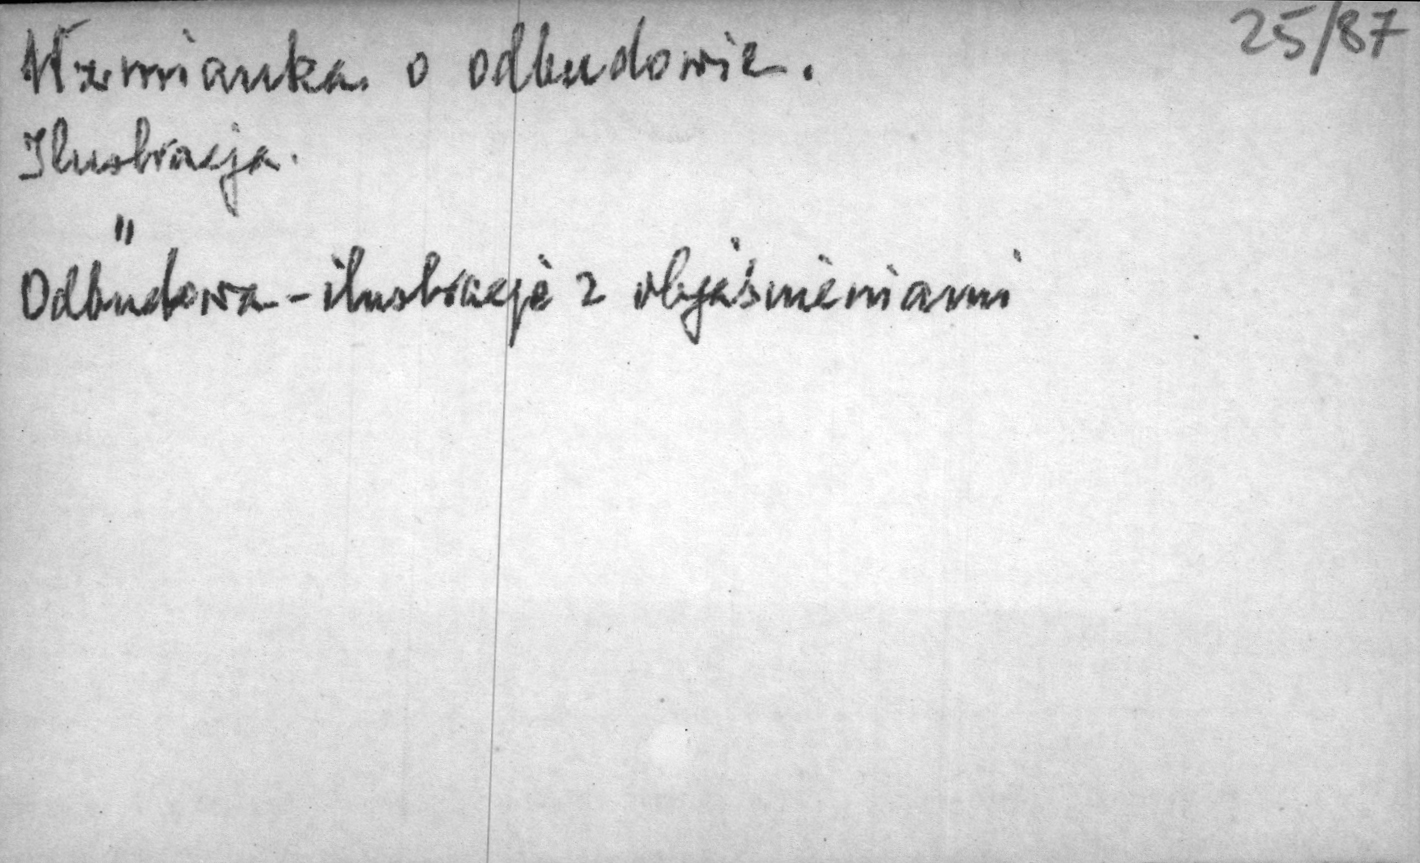 25/87
Wzmianka o odbudowie.
Ilustracja.
"
Odbudowa - ilustracje z objaśnieniami